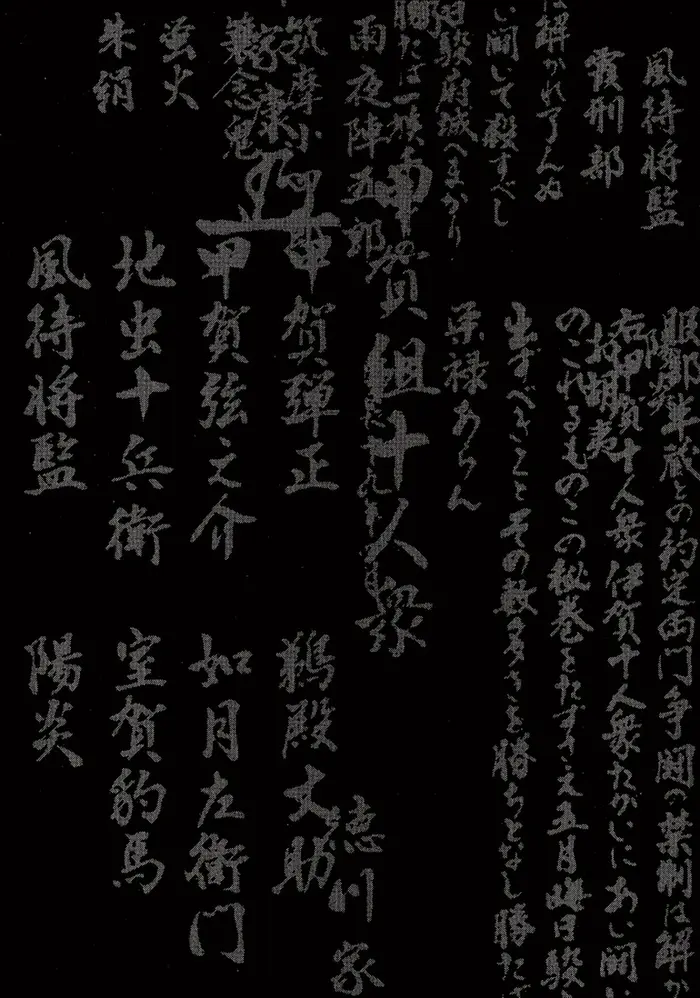 風待将監
霞刑部
は解かれ了んぬ
い闘いて殺すべし
日駿府城へまかり
勝たば一族
雨夜陣五郎
筑摩小四郎
家康
蓑念鬼
蛍火
朱絹
服部半蔵との約定両門争闘の禁制は解か
陽炎
右甲賀十人衆伊賀十人衆たがいにあい闘い
お胡夷
のこれるものこの秘巻をたずさえ五月晦日駿
出ずべきことその数多きを勝ちとなし勝たば
栄禄あらん
甲賀組十人衆
甲賀弾正
甲賀弦之介
地虫十兵衛
風待将監
徳川家
鵜殿丈助
如月左衛門
室賀豹馬
陽炎